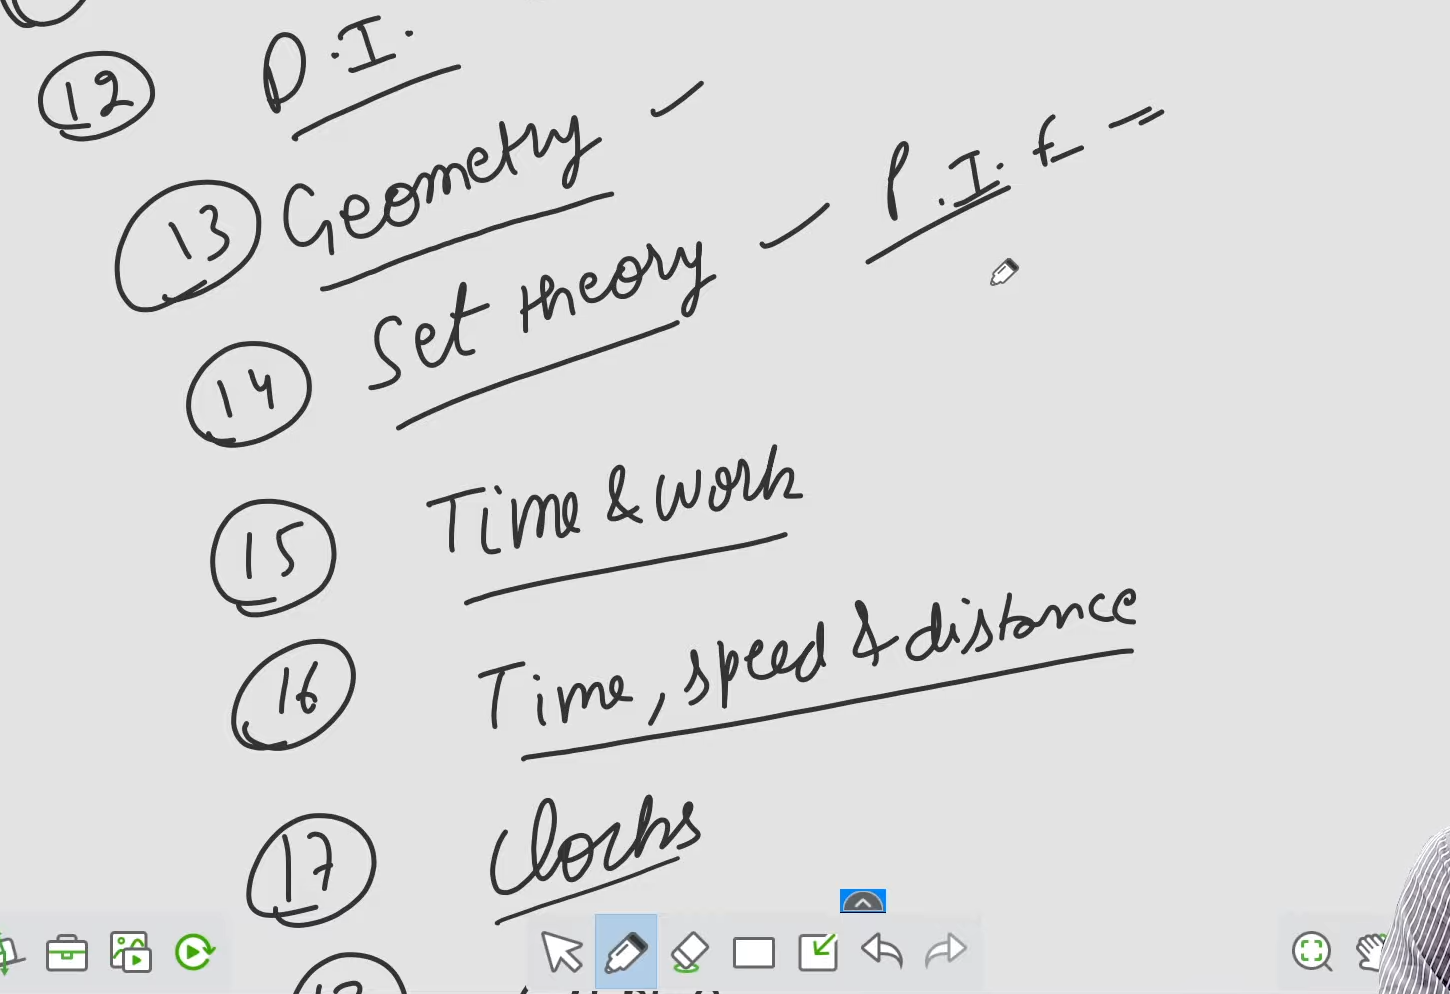 12 D.I.
13 Geometry
14 Set theory - P.I.E
15 Time & work
16 Time, speed & distance
17 Clocks